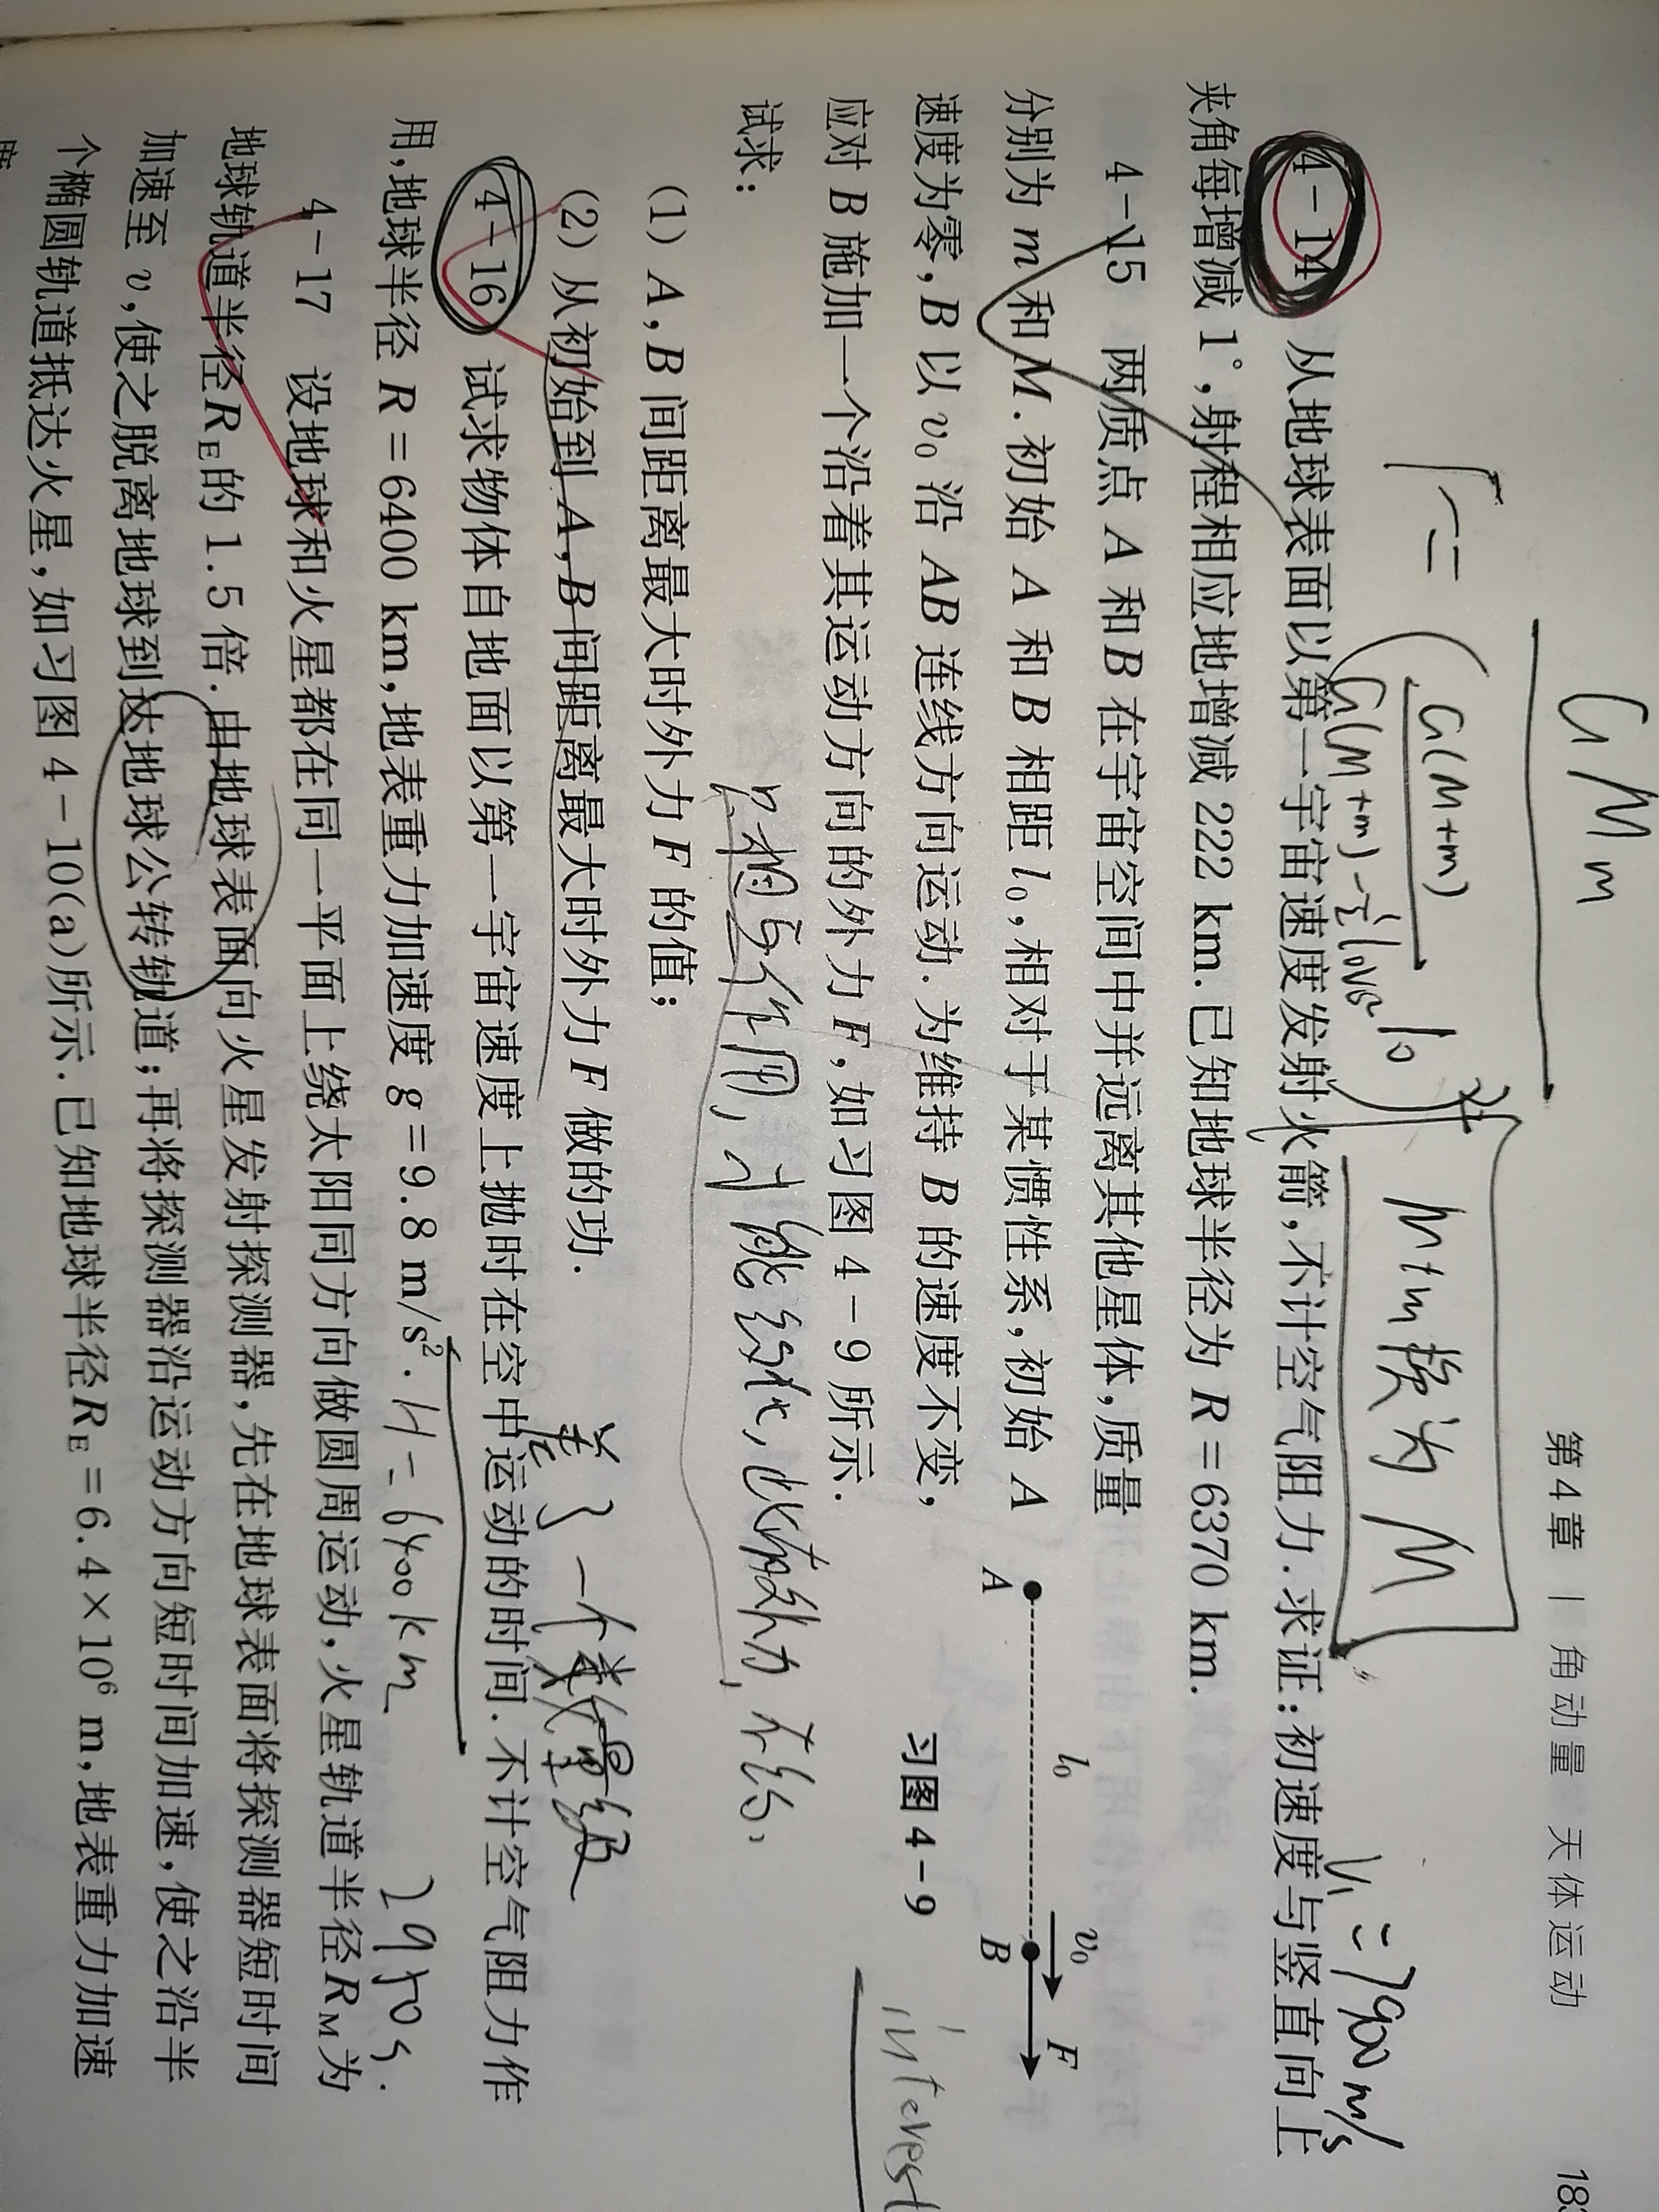 第4章 | 角动量 天体运动
183
GMm
F=
G(M+m)
G(M+m)-½l₀v₀²
l₀
)²
M+m换为M
V₁=7900m/s
4-14 从地球表面以第一宇宙速度发射火箭,不计空气阻力.求证:初速度与竖直向上
夹角每增减1°,射程相应地增减222 km.已知地球半径为R=6370 km.
4-15 两质点A和B在宇宙空间中并远离其他星体,质量
分别为m和M.初始A和B相距l₀,相对于某惯性系,初始A
速度为零,B以v₀沿AB连线方向运动.为维持B的速度不变,
应对B施加一个沿着其运动方向的外力F,如习图4-9所示.
试求:
A
l₀
B
v₀
F
习图4-9
interest
(1) A,B间距离最大时外力F的值;
(2) 从初始到A,B间距离最大时外力F做的功.
差了一个数量级
4-16 试求物体自地面以第一宇宙速度上抛时在空中运动的时间.不计空气阻力作
用,地球半径R=6400 km,地表重力加速度g=9.8 m/s².
H=6400km
2950s.
4-17 设地球和火星都在同一平面上绕太阳同方向做圆周运动,火星轨道半径R_M为
地球轨道半径R_E的1.5倍.由地球表面向火星发射探测器,先在地球表面将探测器短时间
加速至v,使之脱离地球到达地球公转轨道;再将探测器沿运动方向短时间加速,使之沿半
个椭圆轨道抵达火星,如习图4-10(a)所示.已知地球半径R_E=6.4×10⁶ m,地表重力加速
度